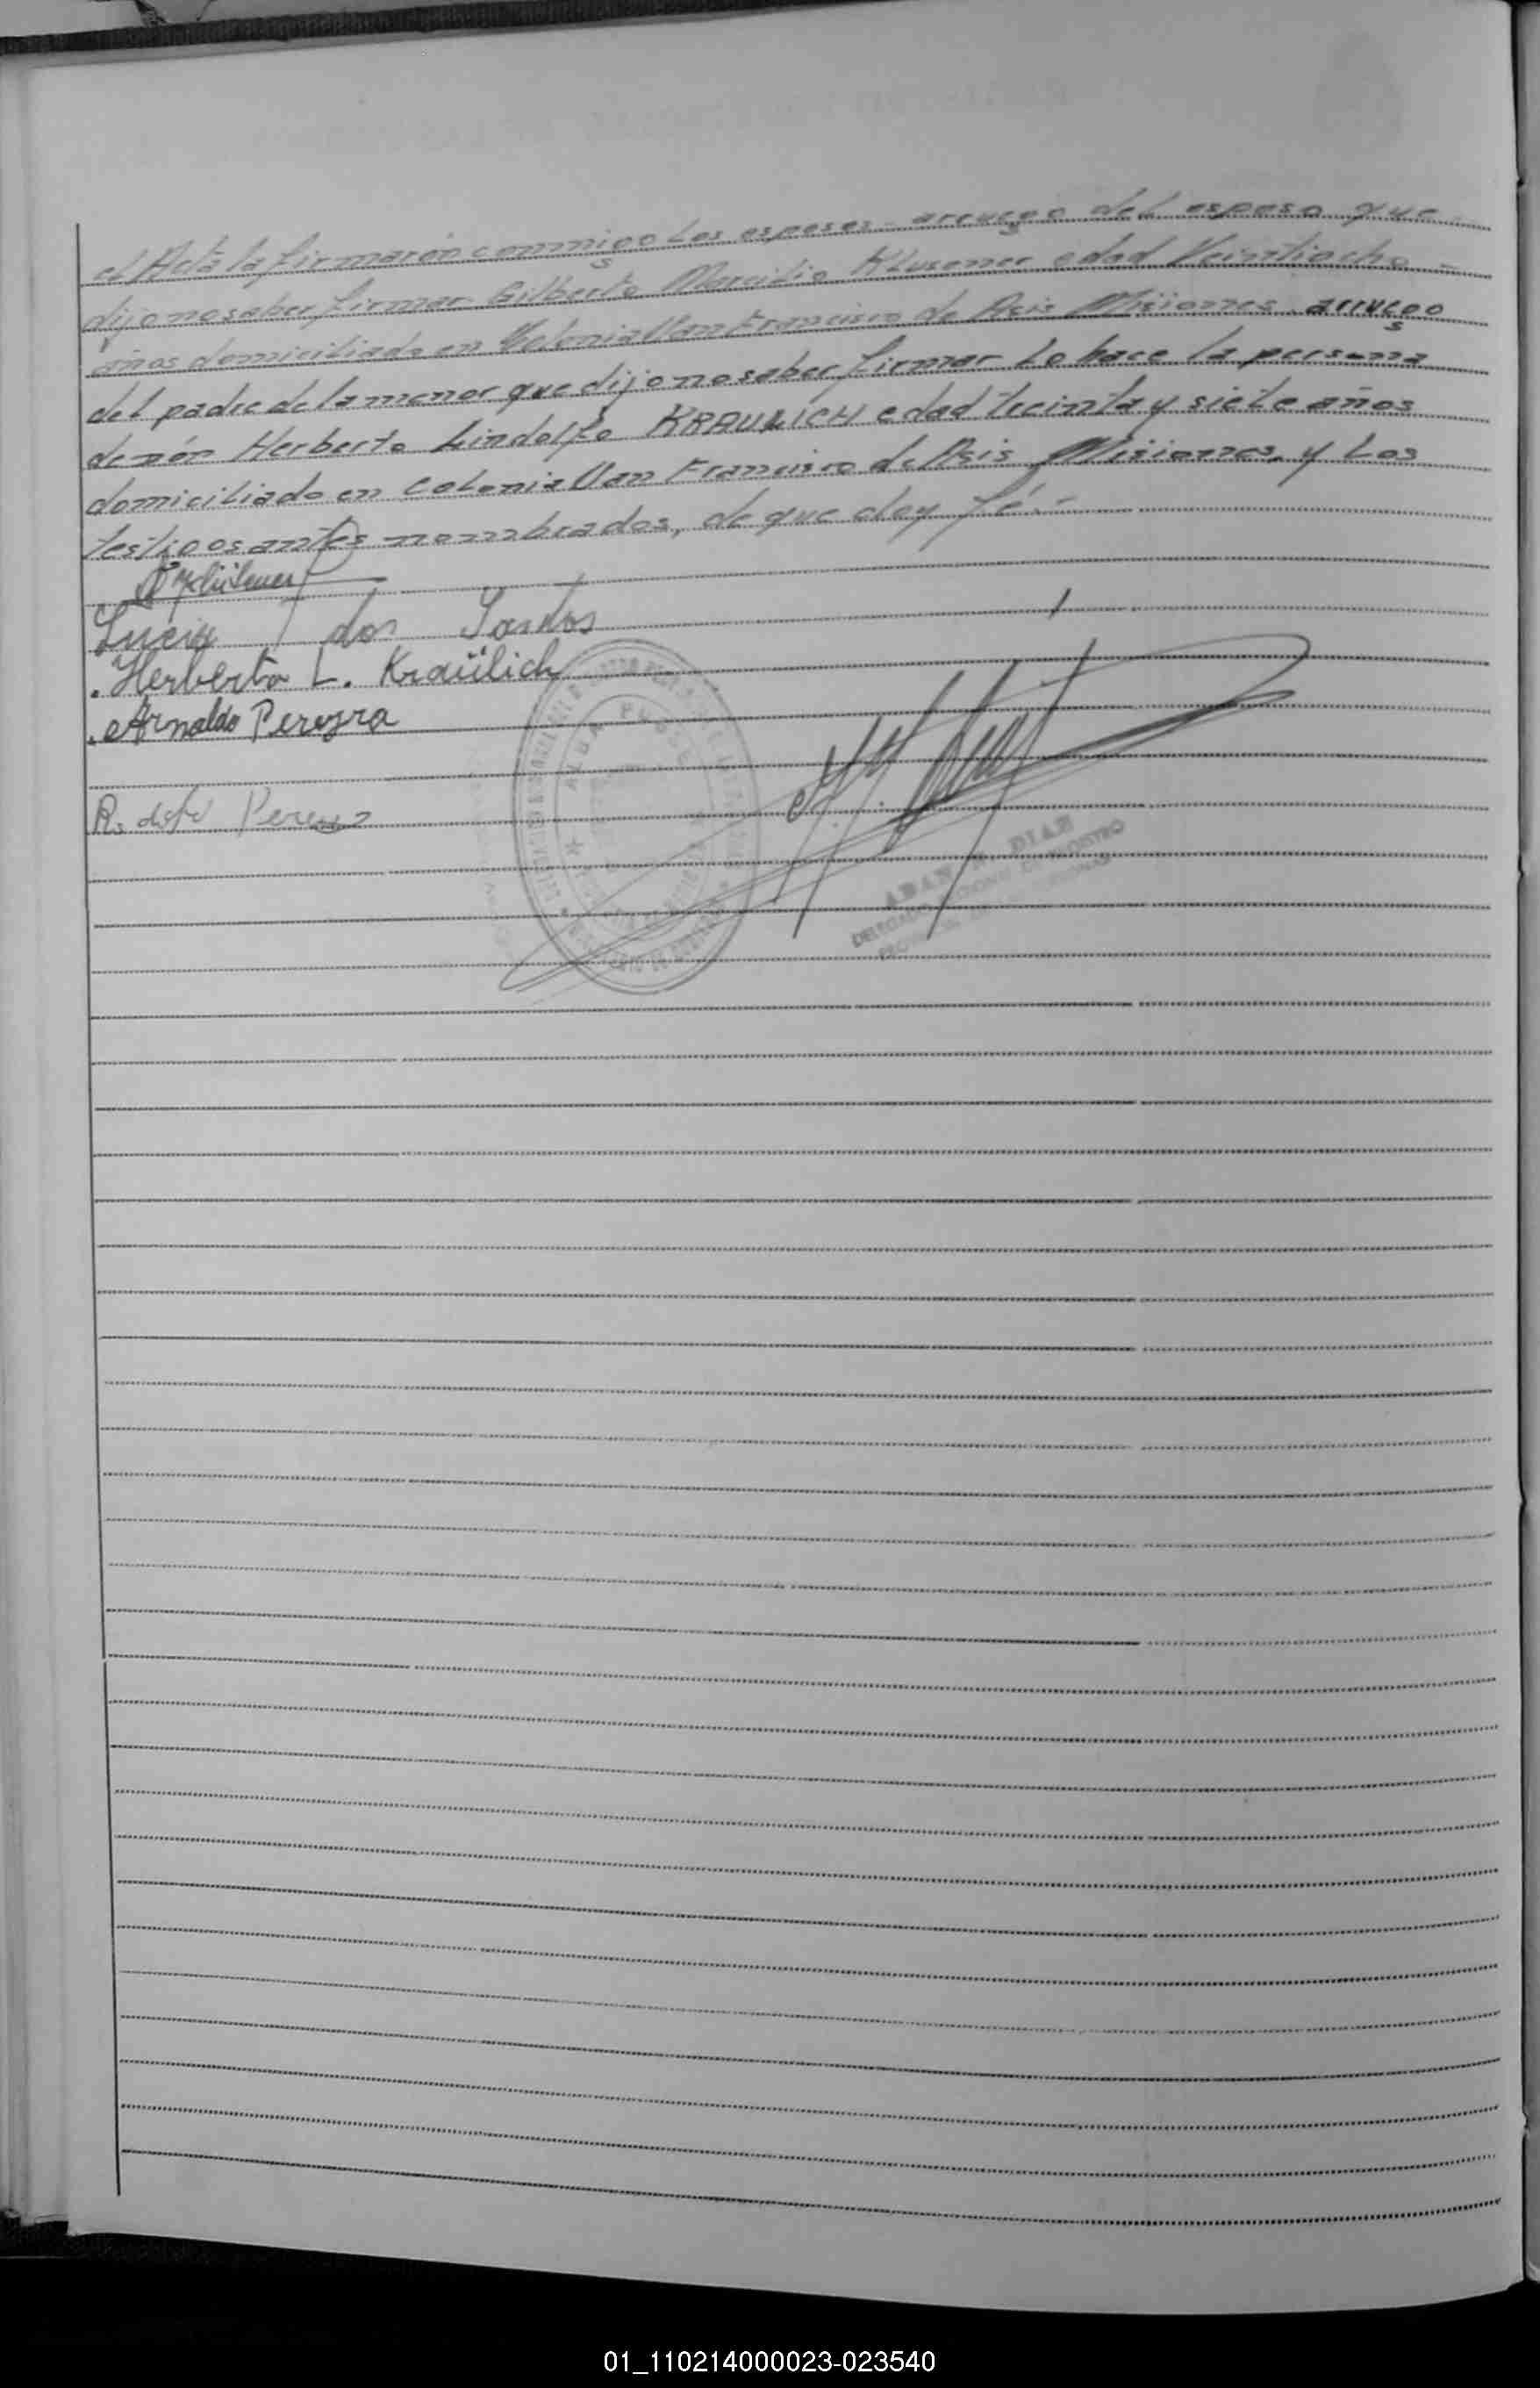 el Acta la firmarón conmigo Los esposos arruego del esposo que
dijo no saber firmar Gilberto Marcilio Klusener edad Veintiocho -
años domiciliado en Colonia San Francisco de Asis Misiones. arruego
del padre de la menor que dijo no saber firmar Lo hace la persona
de nón Herberto Lindolfo KRAULICH edad treinta y siete años
domiciliado en Colonia San Francisco de Asis Misiones, y Los
testigos antes nombrados, de que doy fé.-
Klüsener
Lucia T dos Santos
Herberto L. Kraülich
Arnaldo Pereyra
Rodolfo
ADAN DIAZ
01_110214000023-023540